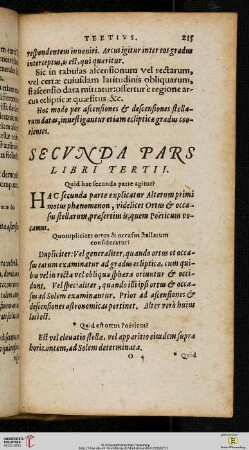 TERTIVS. 215
respondentem inueniri. Arcus igitur inter eos gradus
interceptus, is est, qui quæritur.
Sic in tabulas ascensionum vel rectarum,
vel certæ cuiusdam latitudinis obliquarum,
si ascensio data mittatur: offertur è regione ar-
cus eclipticæ quæsitus, &c.
Hoc modo per ascensiones & descensiones stella-
rum datas, inuestigantur etiam eclipticæ gradus coo-
rientes.
SECVNDA PARS
LIBRI TERTII.
Quid hæc secunda parte agitur?
HAC secunda parte explicatur Alterum primi
motus phenomenon, videlicet Ortus & occa-
sus stellarum, præsertim is, quem Poëticum vo-
camus.
Quotupliciter ortus & occasus stellarum
consideratur?
Dupliciter: Vel generaliter, quando ortus et occa-
sus earum examinatur ad gradus eclipticæ, cum qui-
bus vel in recta vel obliqua sphæra oriuntur & occi-
dunt. Vel specialiter, quando illi ipsi ortus & occa-
sus ad Solem examinantur. Prior ad ascensiones &
descensiones astronomicas pertinet. Alter verò huius
loci est.
Quid est ortus Poëticus?
Est vel eleuatio stellæ, vel apparitio eiusdem supra
horizontem, ad Solem determinata.
O 4 Quid